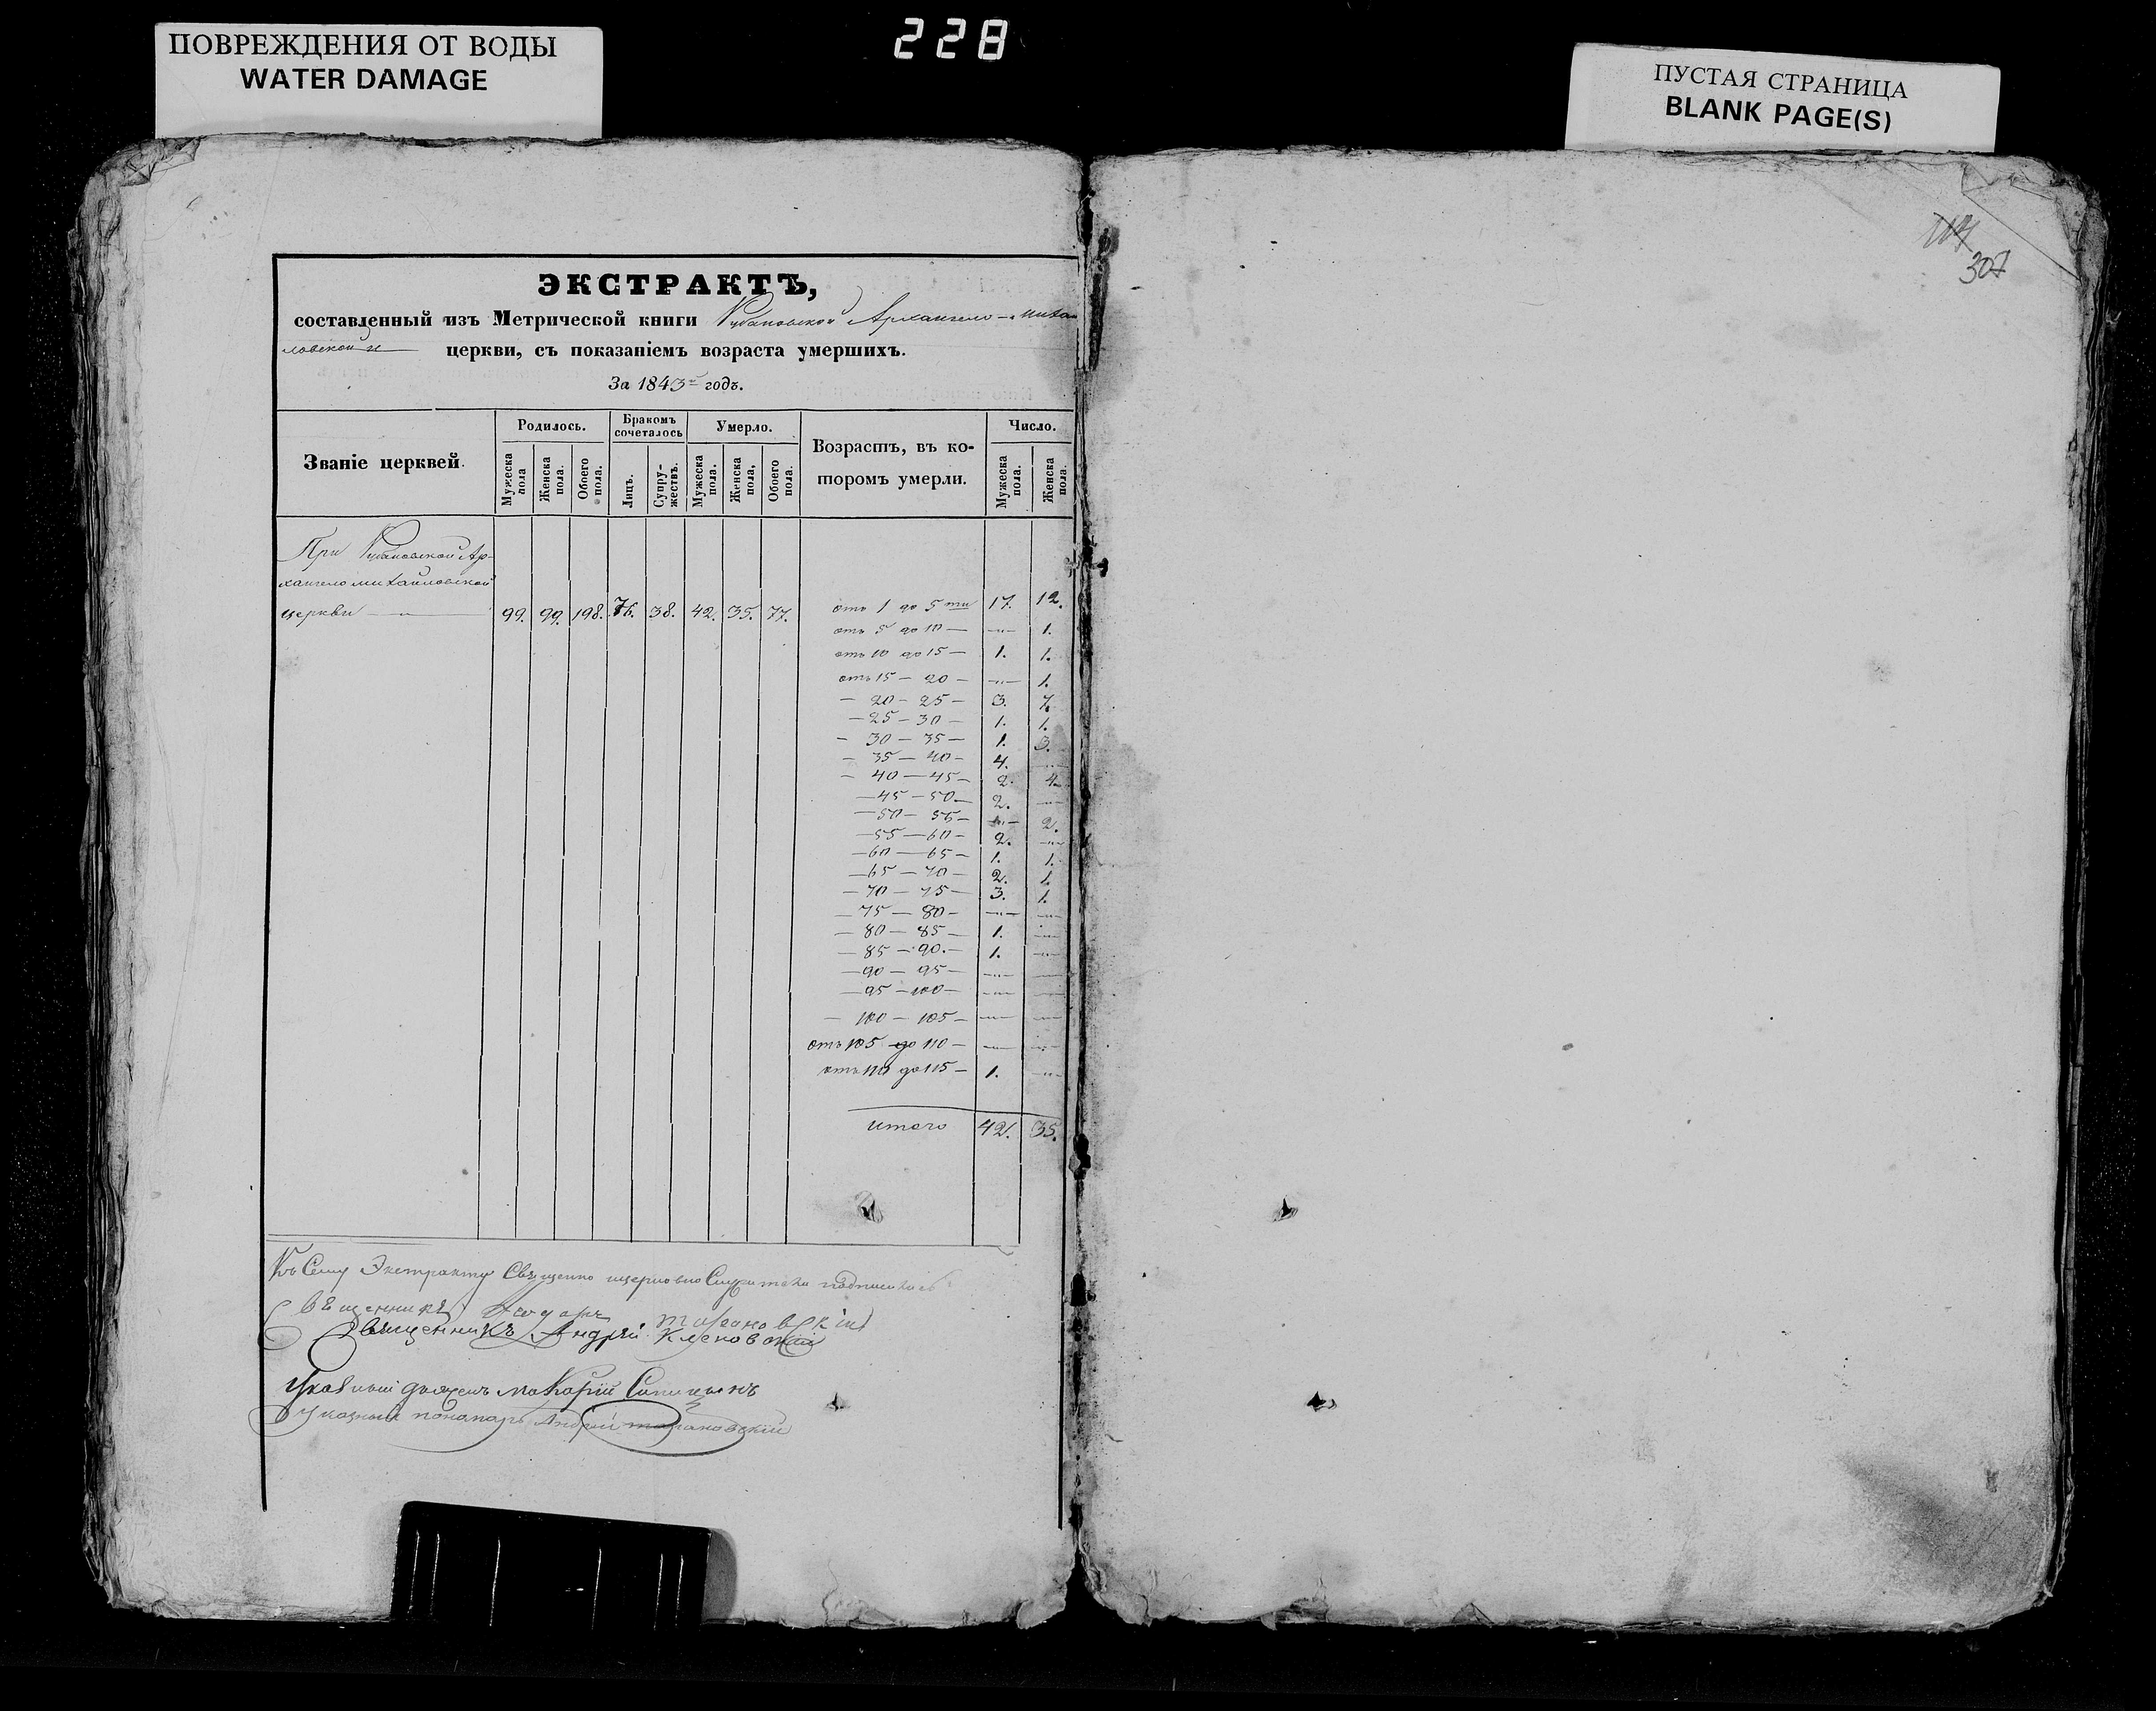 ПОВРЕЖДЕНИЯ ОТ ВОДЫ
WATER DAMAGE
228
ПУСТАЯ СТРАНИЦА
BLANK PAGE(S)
307
ЭКСТРАКТЪ,
составленный изъ Метрической книги Рубановской Архангело-Михай
ловской церкви, съ показаніемъ возраста умершихъ.
За 1843й годъ.
Званіе церквей.
Родилось.
Бракомъ сочеталось
Умерло.
Возрастъ, въ ко-
торомъ умерли.
Число.
Мужеска пола
Женска пола.
Обоего пола.
Лицъ.
Супру-жествъ.
Мужеска пола.
Женска пола,
Обоего пола.
Мужеска пола.
Женска пола.
При Рубановской Ар-
хангело михайловской
церкви — " — 99. 99. 198. 76. 38. 42. 35. 77. отъ 1 до 5ти 17. 12.
отъ 5 до 10 — —"— 1.
отъ 10 до 15 — 1. 1.
отъ 15 — 20 — —"— 1.
— 20 — 25 — 3. 7.
— 25 — 30 — 1. 1.
— 30 — 35 — 1. 3.
— 35 — 40 — 4. —"—
— 40 — 45 — 2. 4.
— 45 — 50 — 2. —"—
— 50 — 55 — —"— 2.
— 55 — 60 — 2. —"—
— 60 — 65 — 1. 1.
— 65 — 70 — 2. 1.
— 70 — 75 — 3. 1.
— 75 — 80 — —"— —"—
— 80 — 85 — 1. —"—
— 85 — 90. — 1. —"—
— 90 — 95 — —"— —"—
— 95 — 100 — —"— —"—
— 100 — 105 — —"— —"—
отъ 105 до 110 — —"— —"—
отъ 110 до 115 — 1. —"—
итого 42. 35.
Къ Сему Экстракту Священно церковно Служители подписались
Священникъ Тарановскій
Священникъ Андрей Клековскій
Указный дьячекъ Макарій
Указный понамарь Андрей Тарановскій